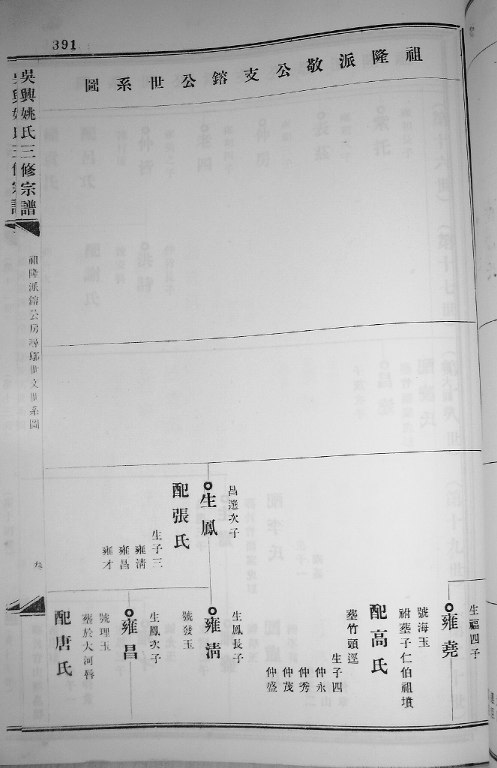 391
祖隆派敬公支鎔公世系圖
昌選次子
生鳳
配張氏
生子三
雍清
雍昌
雍才
生福四子
雍堯
號海玉
祔葬子仁伯祖墳
配高氏
葬竹頭逕
生子四
仲永
仲秀
仲茂
仲盛
生鳳長子
雍清
號發玉
生鳳次子
雍昌
號理玉
葬於大河唇
配唐氏
吳興姚氏三修宗譜